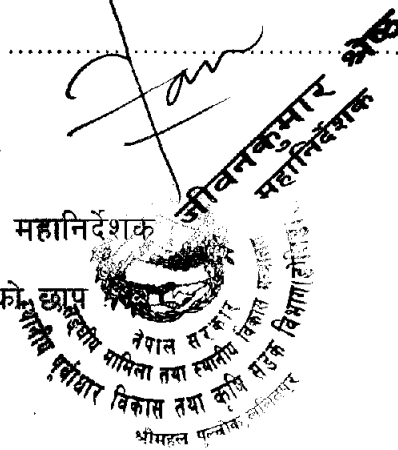 जीवनकुमार श्रेष्ठ
महानिर्देशक
महानिर्देशक
को छाप
नेपाल सरकार
सङ्घीय मामिला तथा स्थानीय विकास मन्त्रालय
स्थानीय पूर्वाधार विकास तथा कृषि सडक विभाग
श्रीमहल पुल्चोक, ललितपुर